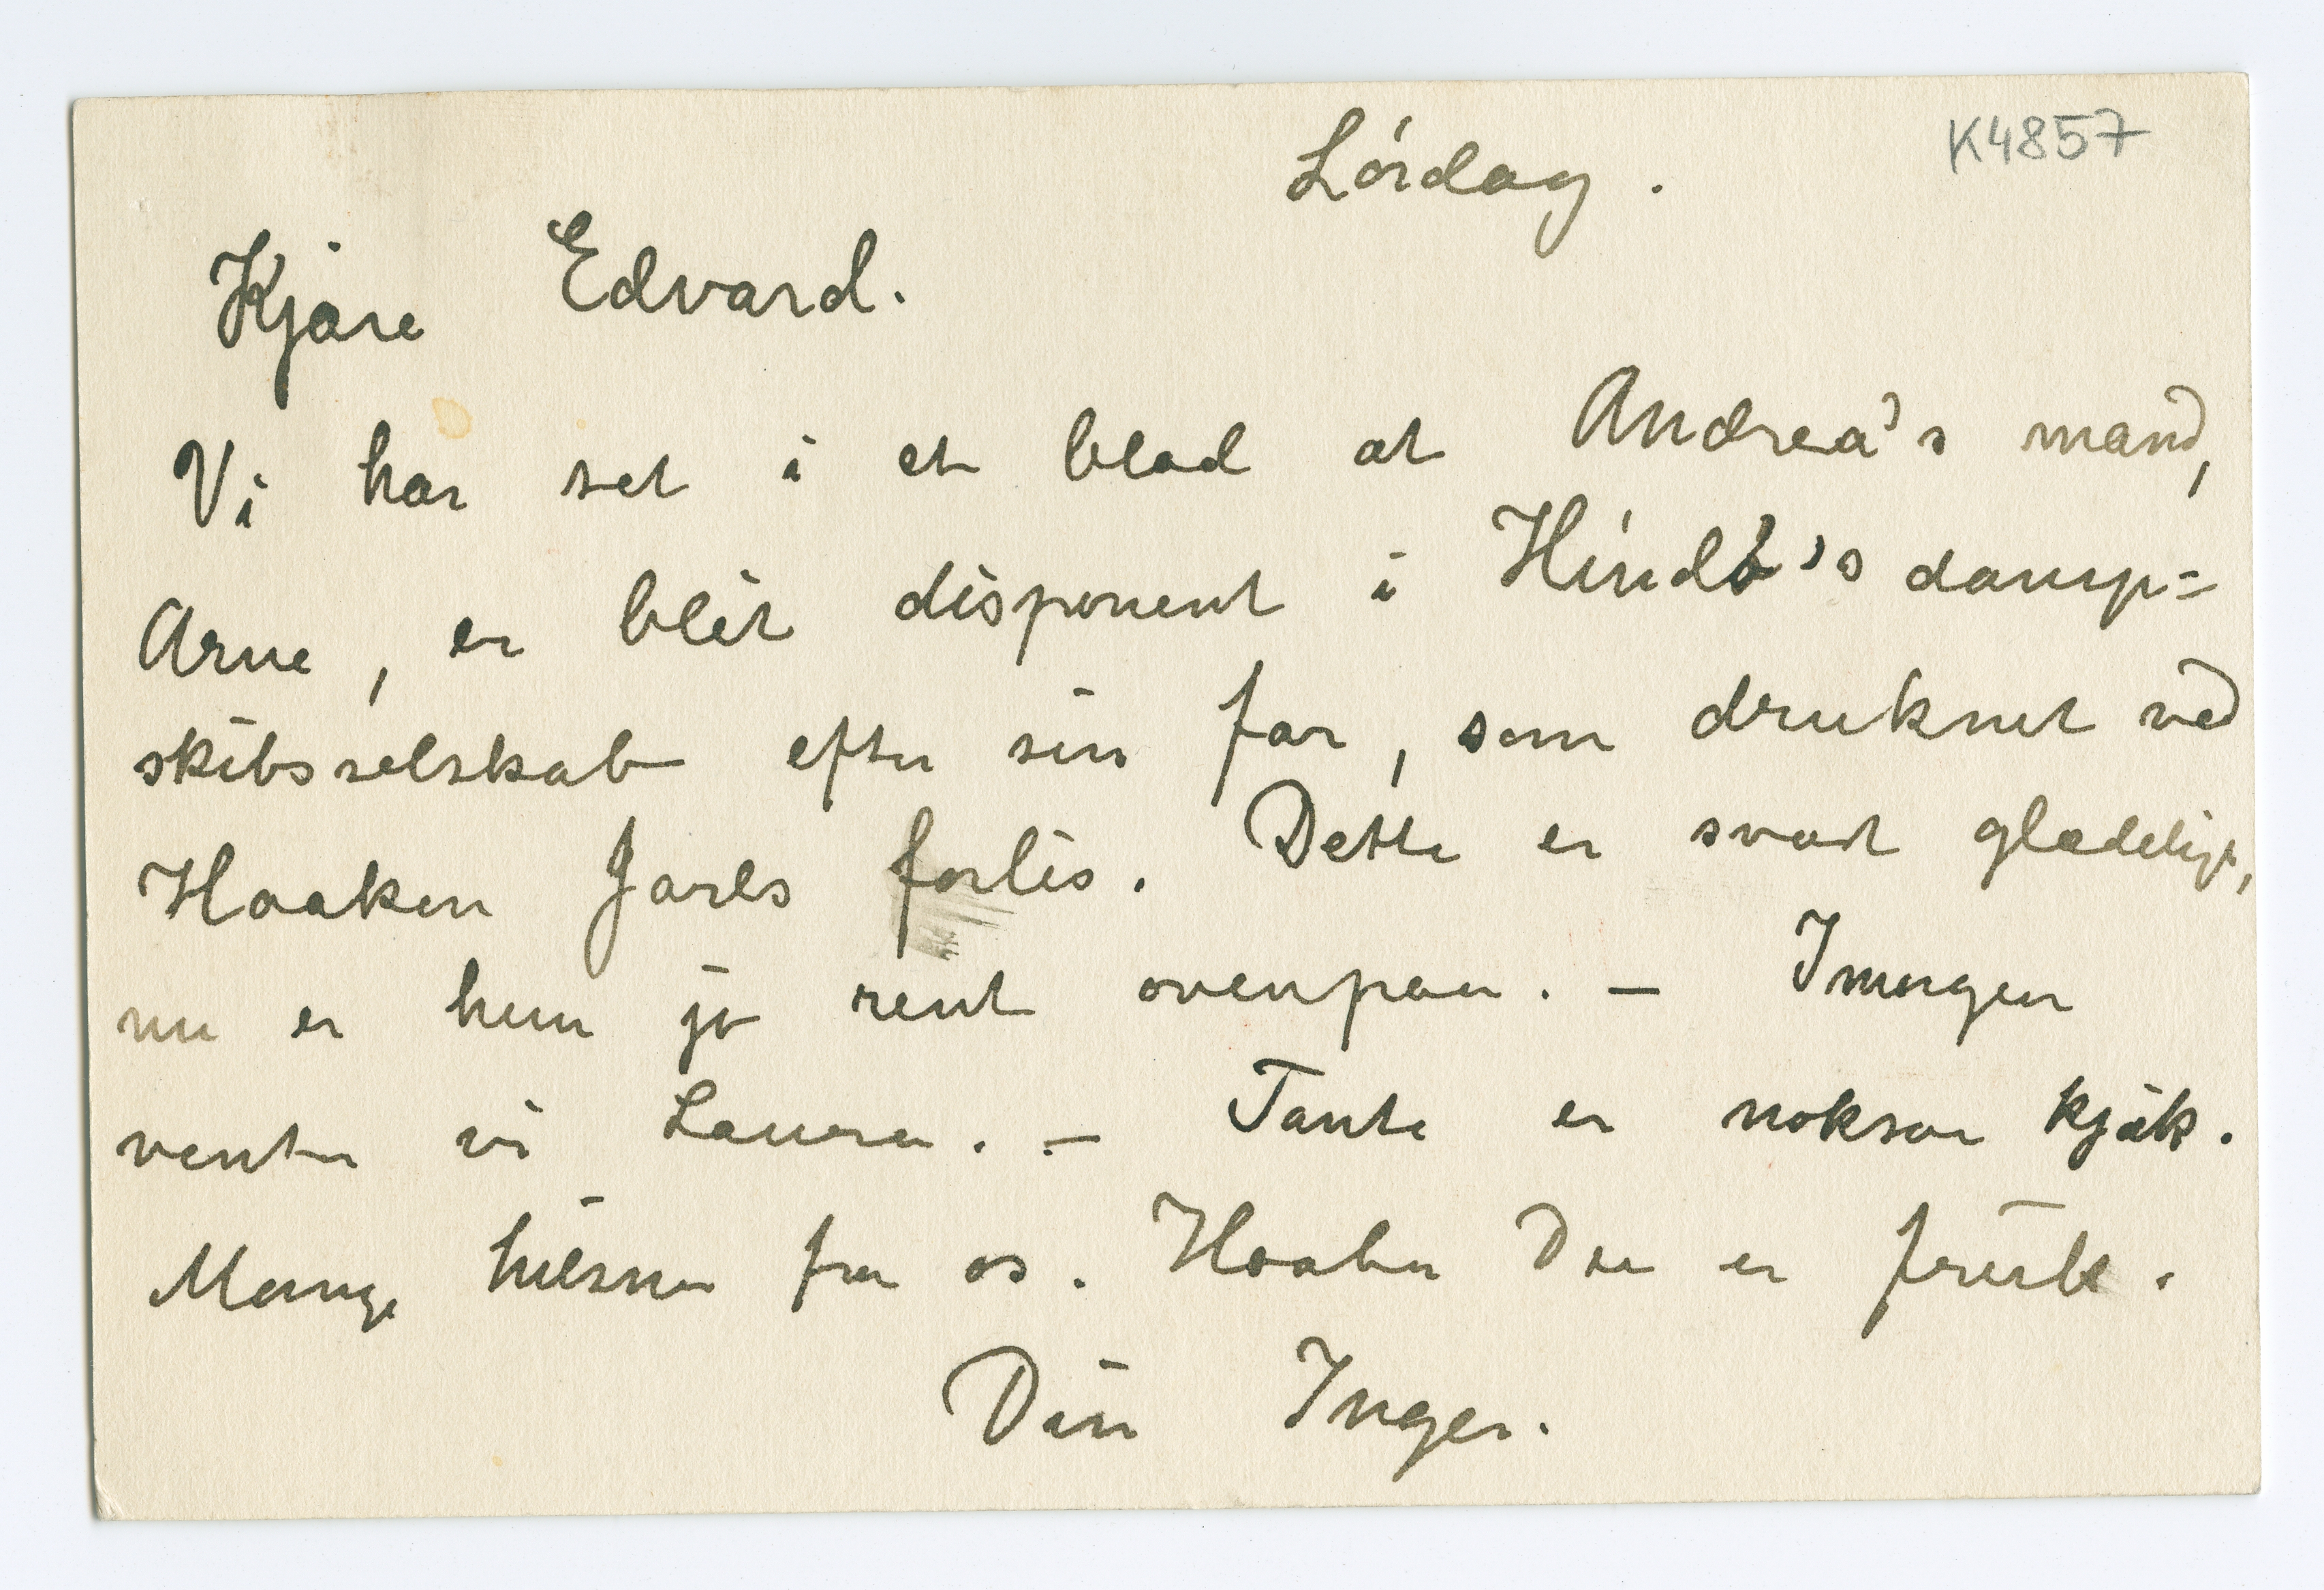 K4857
Lördag.
Kjære Edvard.
Vi har set i et blad at Andrea's mand,
Arne, er blit disponent i Hindö's damp=
skibsselskab efter sin far, som druknet ved
Haaken Jarls forlis. Dette er svært glædeligt,
nu er hun jo rent ovenpaa. – Imorgen
venter vi Laura. – Tante er noksaa kjæk.
Mange hilsner fra os. Haaber Du er frisk.
Din Inger.